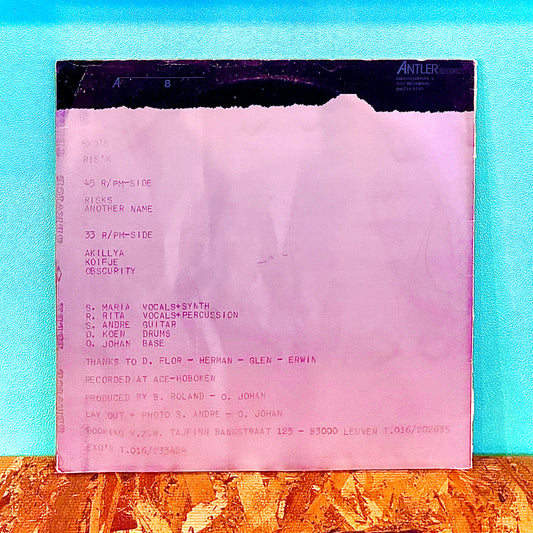 A 8
ANTLER RECORDS
EXO'S
RIS'K
45 R/PM-SIDE
RISKS
ANOTHER NAME
33 R/PM-SIDE
AKILLYA
KOIFJE
OBSCURITY
S. MARIA VOCALS+SYNTH
R. RITA VOCALS+PERCUSSION
S. ANDRE GUITAR
D. KOEN DRUMS
O. JOHAN BASE
THANKS TO D. FLOR - HERMAN - GLEN - ERWIN
RECORDED AT ACE-HOBOKEN
PRODUCED BY B. ROLAND - O. JOHAN
LAY OUT + PHOTO S. ANDRE - O. JOHAN
BOOKING V.Z.W. TAJFINN BANKSTRAAT 125 - B3000 LEUVEN T.016/202635
EXO'S T.016/233A24